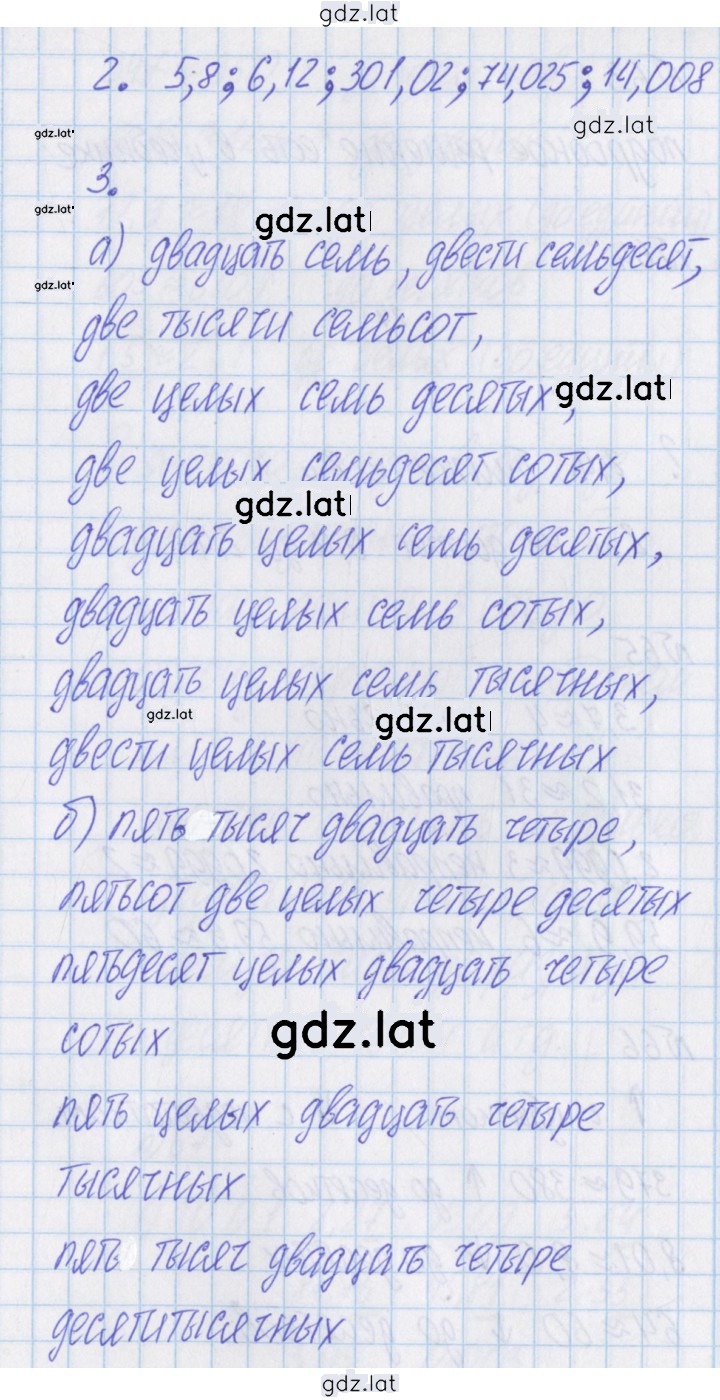 gdz.lat
2. 5,8; 6,12; 301,02; 74,025; 14,008
gdz.lat
gdz.lat
3.
gdz.lat
gdz.lat
а) двадцать семь, двести семьдесят,
gdz.lat
две тысячи семьсот,
две целых семь десятых,
gdz.lat
две целых семьдесят сотых,
gdz.lat
двадцать целых семь десятых,
двадцать целых семь сотых,
двадцать целых семь тысячных,
gdz.lat
gdz.lat
двести целых семь тысячных
б) пять тысяч двадцать четыре,
пятьсот две целых четыре десятых
пятьдесят целых двадцать четыре
gdz.lat
сотых
пять целых двадцать четыре
тысячных
пять тысяч двадцать четыре
десятитысячных
gdz.lat